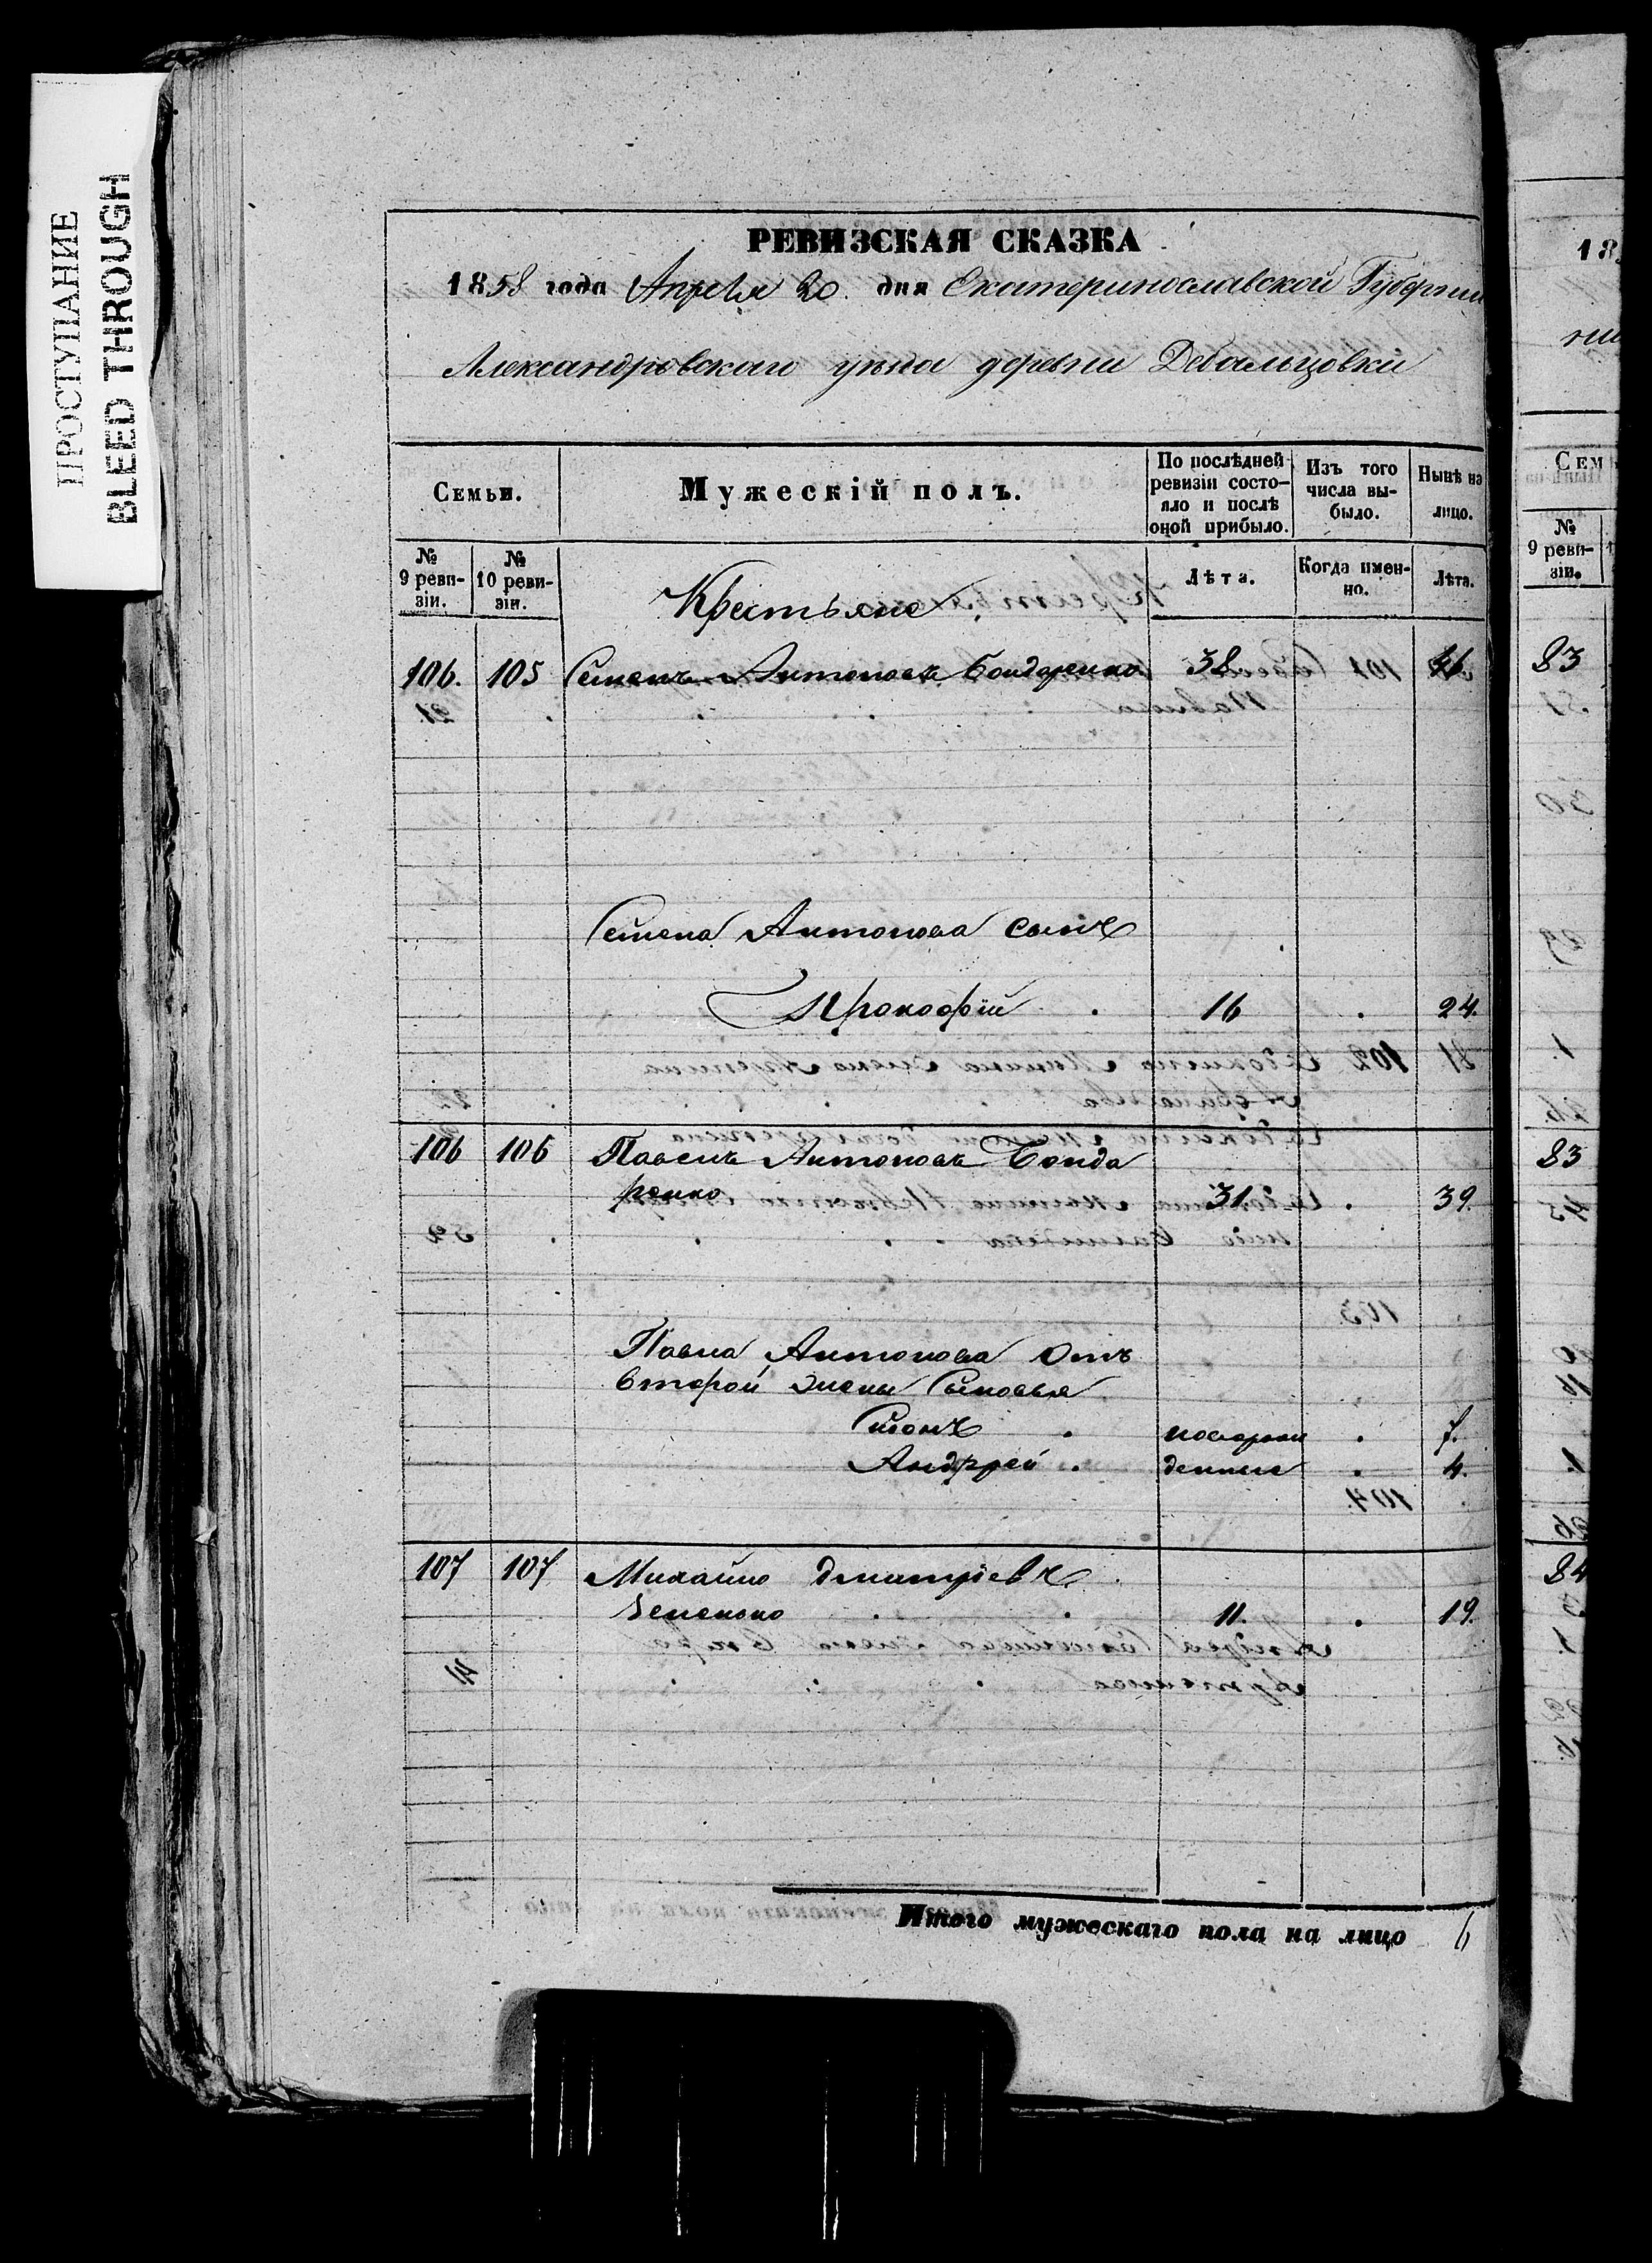 ПРОСТУПАНИЕ
BLEED THROUGH
РЕВИЗСКАЯ СКАЗКА
1858 года Апреля 20. дня Екатеринославской Губернии
Александровскаго уезда деревни Дебальцовки
Семьи.
Мужескій полъ.
По послѣдней ревизіи состояло и послѣ оной прибыло.
Изъ того числа выбыло.
Нынѣ на лицо.
№ 9 ревизіи.
№ 10 ревизіи.
Лѣта.
Когда именно.
Лѣта.
Крестьяне.
106. 105 Семенъ Антоновъ Бондаренко 38 46
Семена Антонова сынъ
Прокофій . 16 . 24.
106 106 Павелъ Антоновъ Бонда
ренко 31. . 39.
Павла Антонова отъ
второй жены сыновья
. новорож . 7.
Андрей . денные . 4.
107 107 Михайло Дмитріевъ
. . 11. . 19.
Итого мужескаго пола на лицо 6
18
Сем
№ 9 ревизіи.
83
83
84